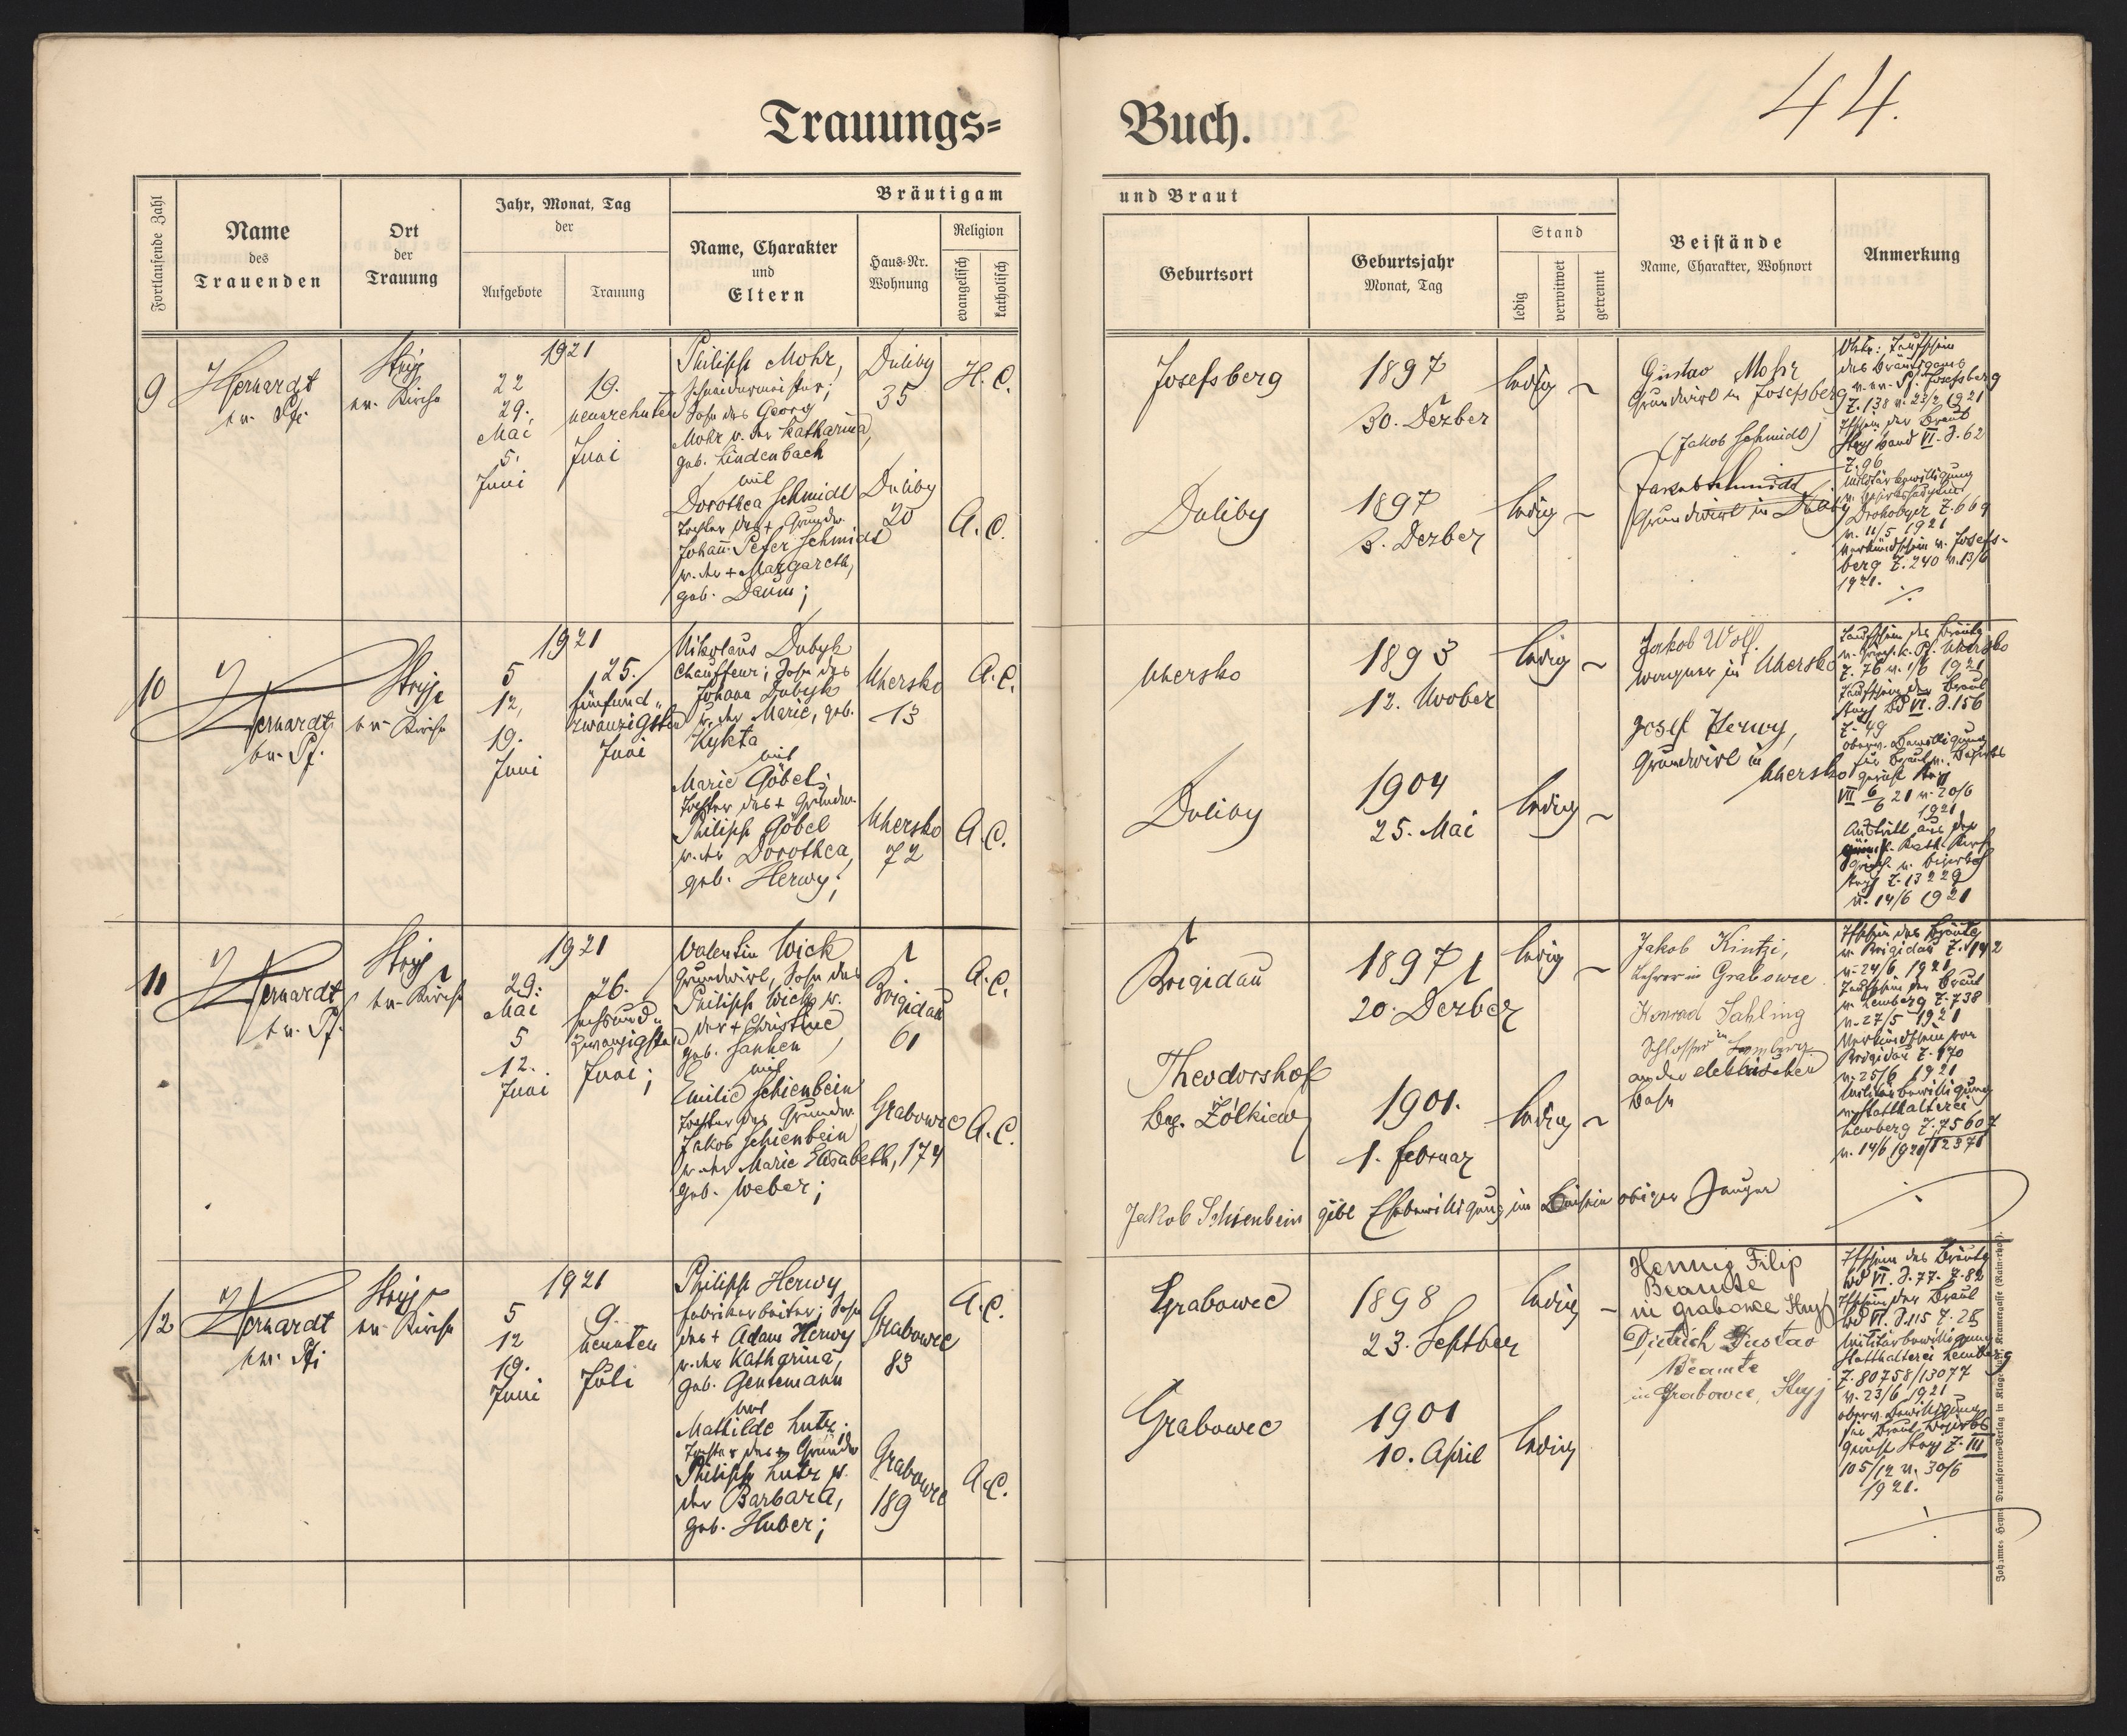 44.
Trauungs=
Buch.
Fortlaufende Zahl
Name
des
Trauenden
Ort
der
Trauung
Jahr, Monat, Tag
der
Aufgebote
Trauung
Bräutigam
Name, Charakter
und
Eltern
Haus-Nr.
Wohnung
Religion
evangelisch
katholisch
und Braut
Geburtsort
Geburtsjahr
Monat, Tag
Stand
ledig
verwitwet
getrennt
Beistände
Name, Charakter, Wohnort
Anmerkung
9
ev. Pf.
Stryj
ev. Kirche
1921
22
29.
Mai
5.
Juni
19.
neunzehnten
Juni
Philipp Mohr,
Schneidermeister;
Sohn des Georg
Mohr u. der Katharina,
geb. Lindenbach
mit
Dorothea Schmidt
Tochter des + Grundw.
Johann Peter Schmidt
u. der + Margareth,
geb. Daum;
Duliby
35
Duliby
20
H. C.
A. C.
Josefsberg
1897
30. Dezber
ledig
Duliby
1897
3. Dezber
ledig
Gustav Mohr
Grundwirt in Josefsberg
(Jakob Schmidt)
Jakob Schmidt
Grundwirt in Duliby
Taufschein
des Bräutigams
v. ev. Pf. Josefsberg
Z. 138 v. 23/2 1921
Tfschein der Braut
Stryj Band VI. S. 62
Z. 96
Militärbewilligung
Drohobycz Z. 669
v. 11/5 1921
Verkündschein v. Josefs-
berg Z. 240 v. 13/6
1921.
10
ev. Pf.
Stryj
ev. Kirche
1921
5
12,
19.
Juni
25.
fünfund„
zwanzigsten
Juni
Nikolaus Dubyk
Chauffeur; Sohn des
Johann Dubyk
u. der Marie, geb.
Kykta
mit
Marie Göbel;
Tochter des + Grundw.
Philipp Göbel
u. der Dorothea,
geb. Herwy;
Uhersko
13
Uhersko
72
A. C.
A. C.
Uhersko
1893
12. Novber
ledig
Duliby
1904
25. Mai
ledig
Jakob Wolf.
Wagner in Uhersko
Josef Herwy,
Grundwirt in
Uhersko
Taufschein des Bräutig
Z. 76 v. 1/6 1921
Taufschein der Braut
Stryj Bd VI. S. 156
Z. 49
oberv. Bewilligung
für Braut v. Bezirks
gericht Stryj
VII 6/6 21 v. 20/6
1921
Austritt aus der
Stryj Z. 13229
v. 14/6 1921
11
ev. Pf.
Stryj
ev. Kirche
1921
29.
Mai
5
12.
Juni
26.
sechsund„
zwanzigsten
Juni;
Valentin Wick
Grundwirt, Sohn des
Philipp Wick u.
der + Christine
geb. Hanken
mit
Emilie Schienbein
Tochter des Grundw.
Jakob Schienbein
u. der Marie Elisabeth,
geb. Weber;
Brigidau
61
Grabowce
174
A. C.
A. C.
Brigidau
1897
20. Dezber
ledig
Theodorshof
Bez. Żółkiew
1901.
1. Februar
ledig
Jakob Kintzi,
Lehrer in Grabowce
Konrad Sahling
Schlosser in Lemberg
an der elektrischen
Bahn
Tfschein des Bräutig
v. Brigidau Z. 142
v. 24/6 1921
Taufschein der Braut
v. Lemberg Z. 738
v. 27/5 1921
Verkündschein von
Brigidau Z. 170
v. 25/6 1921
Militärbewilligung
v. Statthalterei
Lemberg Z. 75607
v. 14/6 1921/12571
Jakob Schienbein gibt Ehebewilligung im Beisein obiger Zeugen
12
ev. Pf.
Stryj
ev. Kirche
1921
5
12
19.
Juni
9.
neunten
Juli
Philipp Herwy
Fabriksarbeiter; Sohn
des + Adam Herwy
u. der Katharina,
geb. Gentemann
mit
Mathilde Lutz;
Tochter des + Grundw
Philipp Lutz u.
der Barbara,
geb. Huber;
Grabowce
83
Grabowce
189
A. C.
A. C.
Grabowce
1898
23. Septber
ledig
Grabowce
1901
10. April
ledig
Hennig Filip
Beamte
in Grabowce Stryj
Dietrich Gustav
Beamte
in Grabowce, Stryj
Tfschein des Bräutig
Bd VI. S. 77. Z. 82
Tfschein der Braut
Bd VI. S. 115 Z. 28
Militärbewilligung
Statthalterei Lemberg
Z. 80758/13077
v. 23/6 1921
oberv. Bewilligung
für Braut Bezirks
gericht Stryj Z. III
105/12 v. 30/6
1921.